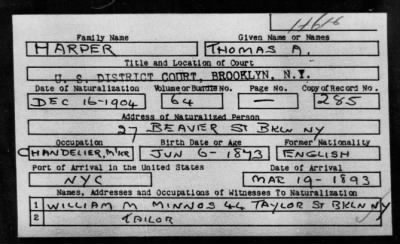 Family Name Given Name or Names
HARPER THOMAS A.
Title and Location of Court
U. S. DISTRICT COURT, BROOKLYN, N.Y.
Date of Naturalization Volume or Bundle No. Page No. Copy of Record No.
DEC 16-1904 64 — 285
Address of Naturalized Person
27 BEAVER ST BKLN NY
Occupation Birth Date or Age Former Nationality
CHANDELIER, M'KR JUN 6-1873 ENGLISH
Port of Arrival in the United States Date of Arrival
NYC MAR 19-1893
Names, Addresses and Occupations of Witnesses To Naturalization
1 WILLIAM M MINNOS 44 TAYLOR ST BKLN NY
2 TAILOR